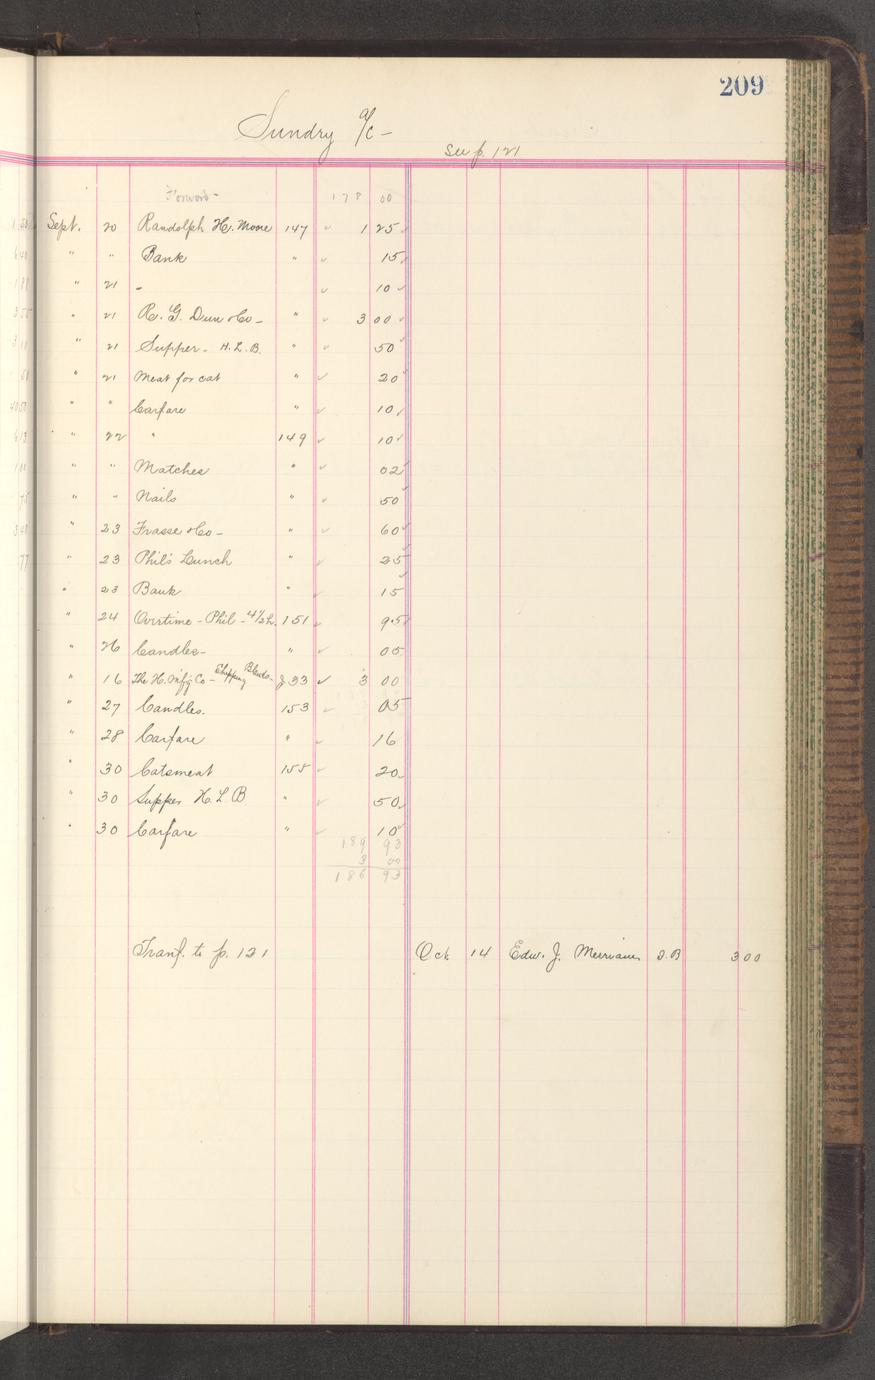 209
Sundry a/c -
See p. 121
Forward - 178 00
Sept. 20 Randolph H. Moore 147 ✓ 1 25 ✓
" " Bank " ✓ 15 ✓
" 21 - ✓ 10 ✓
" 21 R. G. Dun & Co - " ✓ 3 00 ✓
" 21 Supper - H. L. B. " ✓ 50 ✓
" 21 Meat for cat " ✓ 20 ✓
" " Carfare " ✓ 10 ✓
" 22 " 149 ✓ 10 ✓
" " Matches " ✓ 02 ✓
" " Nails " ✓ 50 ✓
" 23 Frasse & Co - " ✓ 60 ✓
" 23 Phil's Lunch " ✓ 25 ✓
" 23 Bank " ✓ 15 ✓
" 24 Overtime - Phil - 4 1/2 h. 151 ✓ 95
" 26 Candles - " ✓ 05
" 16 The H. Mfg Co - Shipping J33 ✓ 3 00
" 27 Candles. 153 ✓ 05
" 28 Carfare " ✓ 16
" 30 Catsmeat 155 ✓ 20
" 30 Supper H. L B " ✓ 50
" 30 Carfare " ✓ 10 ✓
189 93
3 00
186 93
Tranf. to p. 121 Oct 14 Edw. J. Merriam 300